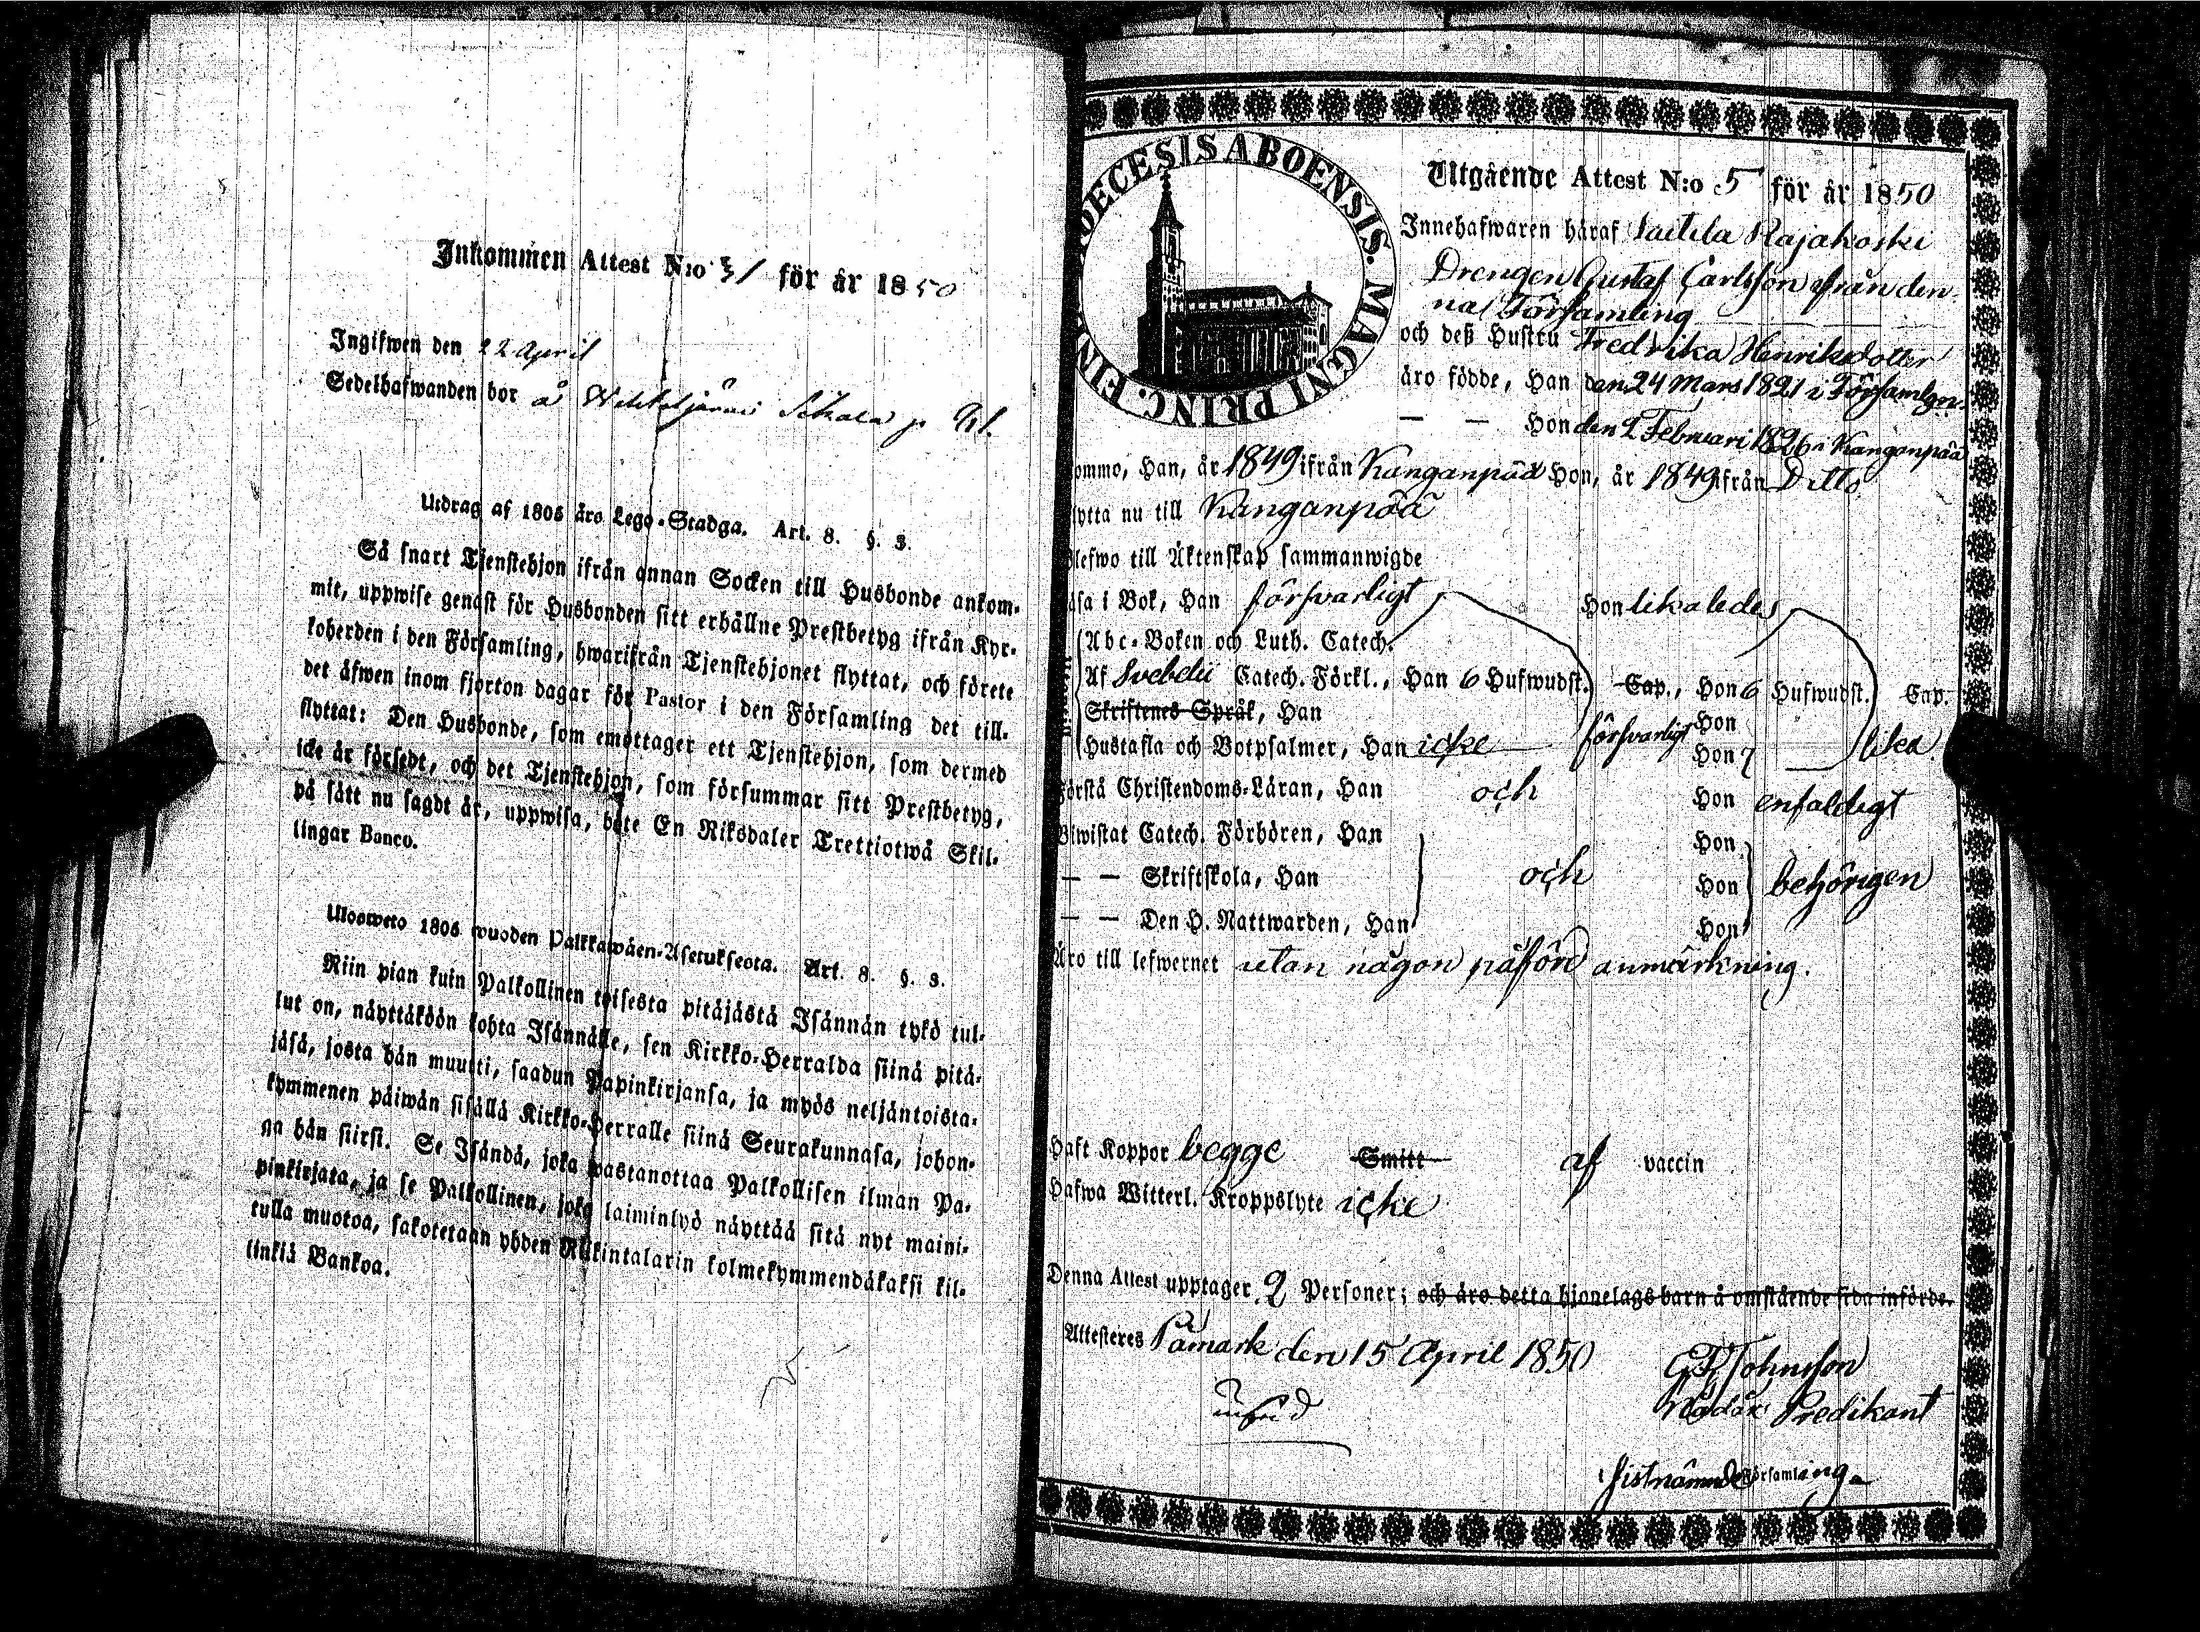 Inkommen Attest N:o 31 för år 1850
Ingifwen den 22 April
Sedelhafwanden bor å
Utdrag af 1805 års Lego-Stadga. Art. 8. §. 3.
Så snart Tjenstehjon ifrån annan Socken till Husbonde ankom-
mit, uppwise genast för Husbonden sitt erhållne Prestbetyg ifrån Kyr-
koherden i den Församling, hwarifrån Tjenstehjonet flyttat, och förete
det äfwen inom fjorton dagar för Pastor i den Församling det till-
flyttat: Den Husbonde, som emottager ett Tjenstehjon, som dermed
icke är försedt, och det Tjenstehjon, som försummar sitt Prestbetyg,
på sätt nu sagdt är, uppwisa, böte En Riksdaler Trettiotwå Skil-
lingar Banco.
Uloosweto 1805 wuoden Palkkawäen-Asetuksesta. Art. 8. §. 3.
Niin pian kuin Palkollinen toisesta pitäjästä Isännän tykö tul-
lut on, näyttäköön kohta Isännälle, sen Kirkko-Herralda siinä pitä-
jäsä, josta hän muutti, saadun Papinkirjansa, ja myös neljäntoista-
kymmenen päiwän sisällä Kirkko-Herralle siinä Seurakunnasa, johon-
ga hän siirsi. Se Isändä, joka wastanottaa Palkollisen ilman Pa-
pinkirjata, ja se Palkollinen, joka laiminlyö näyttää sitä nyt maini-
tulla muotoa, sakotetaan yhden Riikintalarin kolmekymmendäkaksi kil-
linkiä Bankoa.
DIOECESIS ABOENSIS. MAGNI PRINC. FINL
Utgående Attest N:o 5 för år 1850
Innehafwaren häraf Rajakoski
Drengen Gustaf Carlsson från den-
na Församling
och deß Hustru Fredrika Henriksdotter
äro födde, Han den 24 Mars 1821 i Församlgn.
— — Hon den 2 Februari 1826 i Kanganpää
ommo, Han, år 1849 ifrån Kanganpää Hon, år 1849 ifrån Ditto
lytta nu till Kanganpää
lefwo till Äktenskap sammanwigde
äsa i Bok, Han försvarligt Hon likaledes
Abc-Boken och Luth. Catech.
Af Svebelii Catech. Förkl., Han 6 Hufwudst. Cap., Hon 6 Hufwudst. Cap.
Skriftenes Språk, Han försvarligt Hon
Hustafla och Botpsalmer, Han icke Hon lika
Förstå Christendoms-Läran, Han och Hon enfaldigt
Biwistat Catech. Förhören, Han Hon
— — Skriftskola, Han och Hon behörigen
— — Den H. Nattwarden, Han Hon
Äro till lefwernet utan någon påförd anmärkning.
Haft Koppor begge Smitt af vaccin
Hafwa Witterl. Kroppslyte icke
Denna Attest upptager 2 Personer; och äro detta hjonelags barn å omstående sida införde.
Attesteres Påmark den 15 April 1850
Johnsson
Predikant
sistnämnde Församling